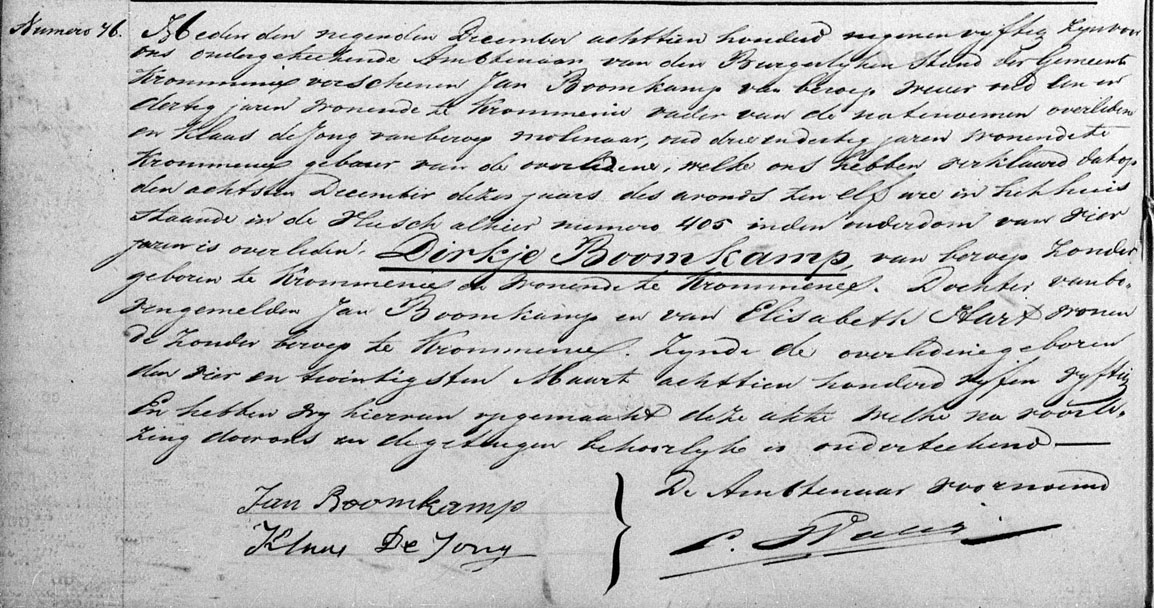 Numero 76. Heden den negenden December achttien honderd negen en vyftig zyn voor
ons ondergeteekende Ambtenaar van den Burgerlyken Stand der Gemeente
Krommenie verschenen Jan Boomkamp van beroep wever oud een en
dertig jaren wonende te Krommenie vader van de natenoemen overleden
en Klaas de Jong van beroep molenaar, oud drie en dertig jaren wonende te
Krommenie gebuur van de overledene, welke ons hebben verklaard dat op
den achtsten December dezes jaars des avonds ten elf ure in het huis
staande in de alhier numero 405 in den ouderdom van vier
jaren is overleden, Dirkje Boomkamp, van beroep zonder
geboren te Krommenie en wonende te Krommenie. Dochter van bo-
vengemelden Jan Boomkamp en van Elisabeth Hart wonen
de zonder beroep te Krommenie. Zynde de overledene geboren
den vier en twintigsten Maart achttien honderd vyf en vyftig
En hebben wy hiervan opgemaakt deze akte welke na voorle-
zing door ons en de getuigen behoorlyk is onderteekend —
Jan Boomkamp
Klaas De Jong
De Ambtenaar voornoemd
C.